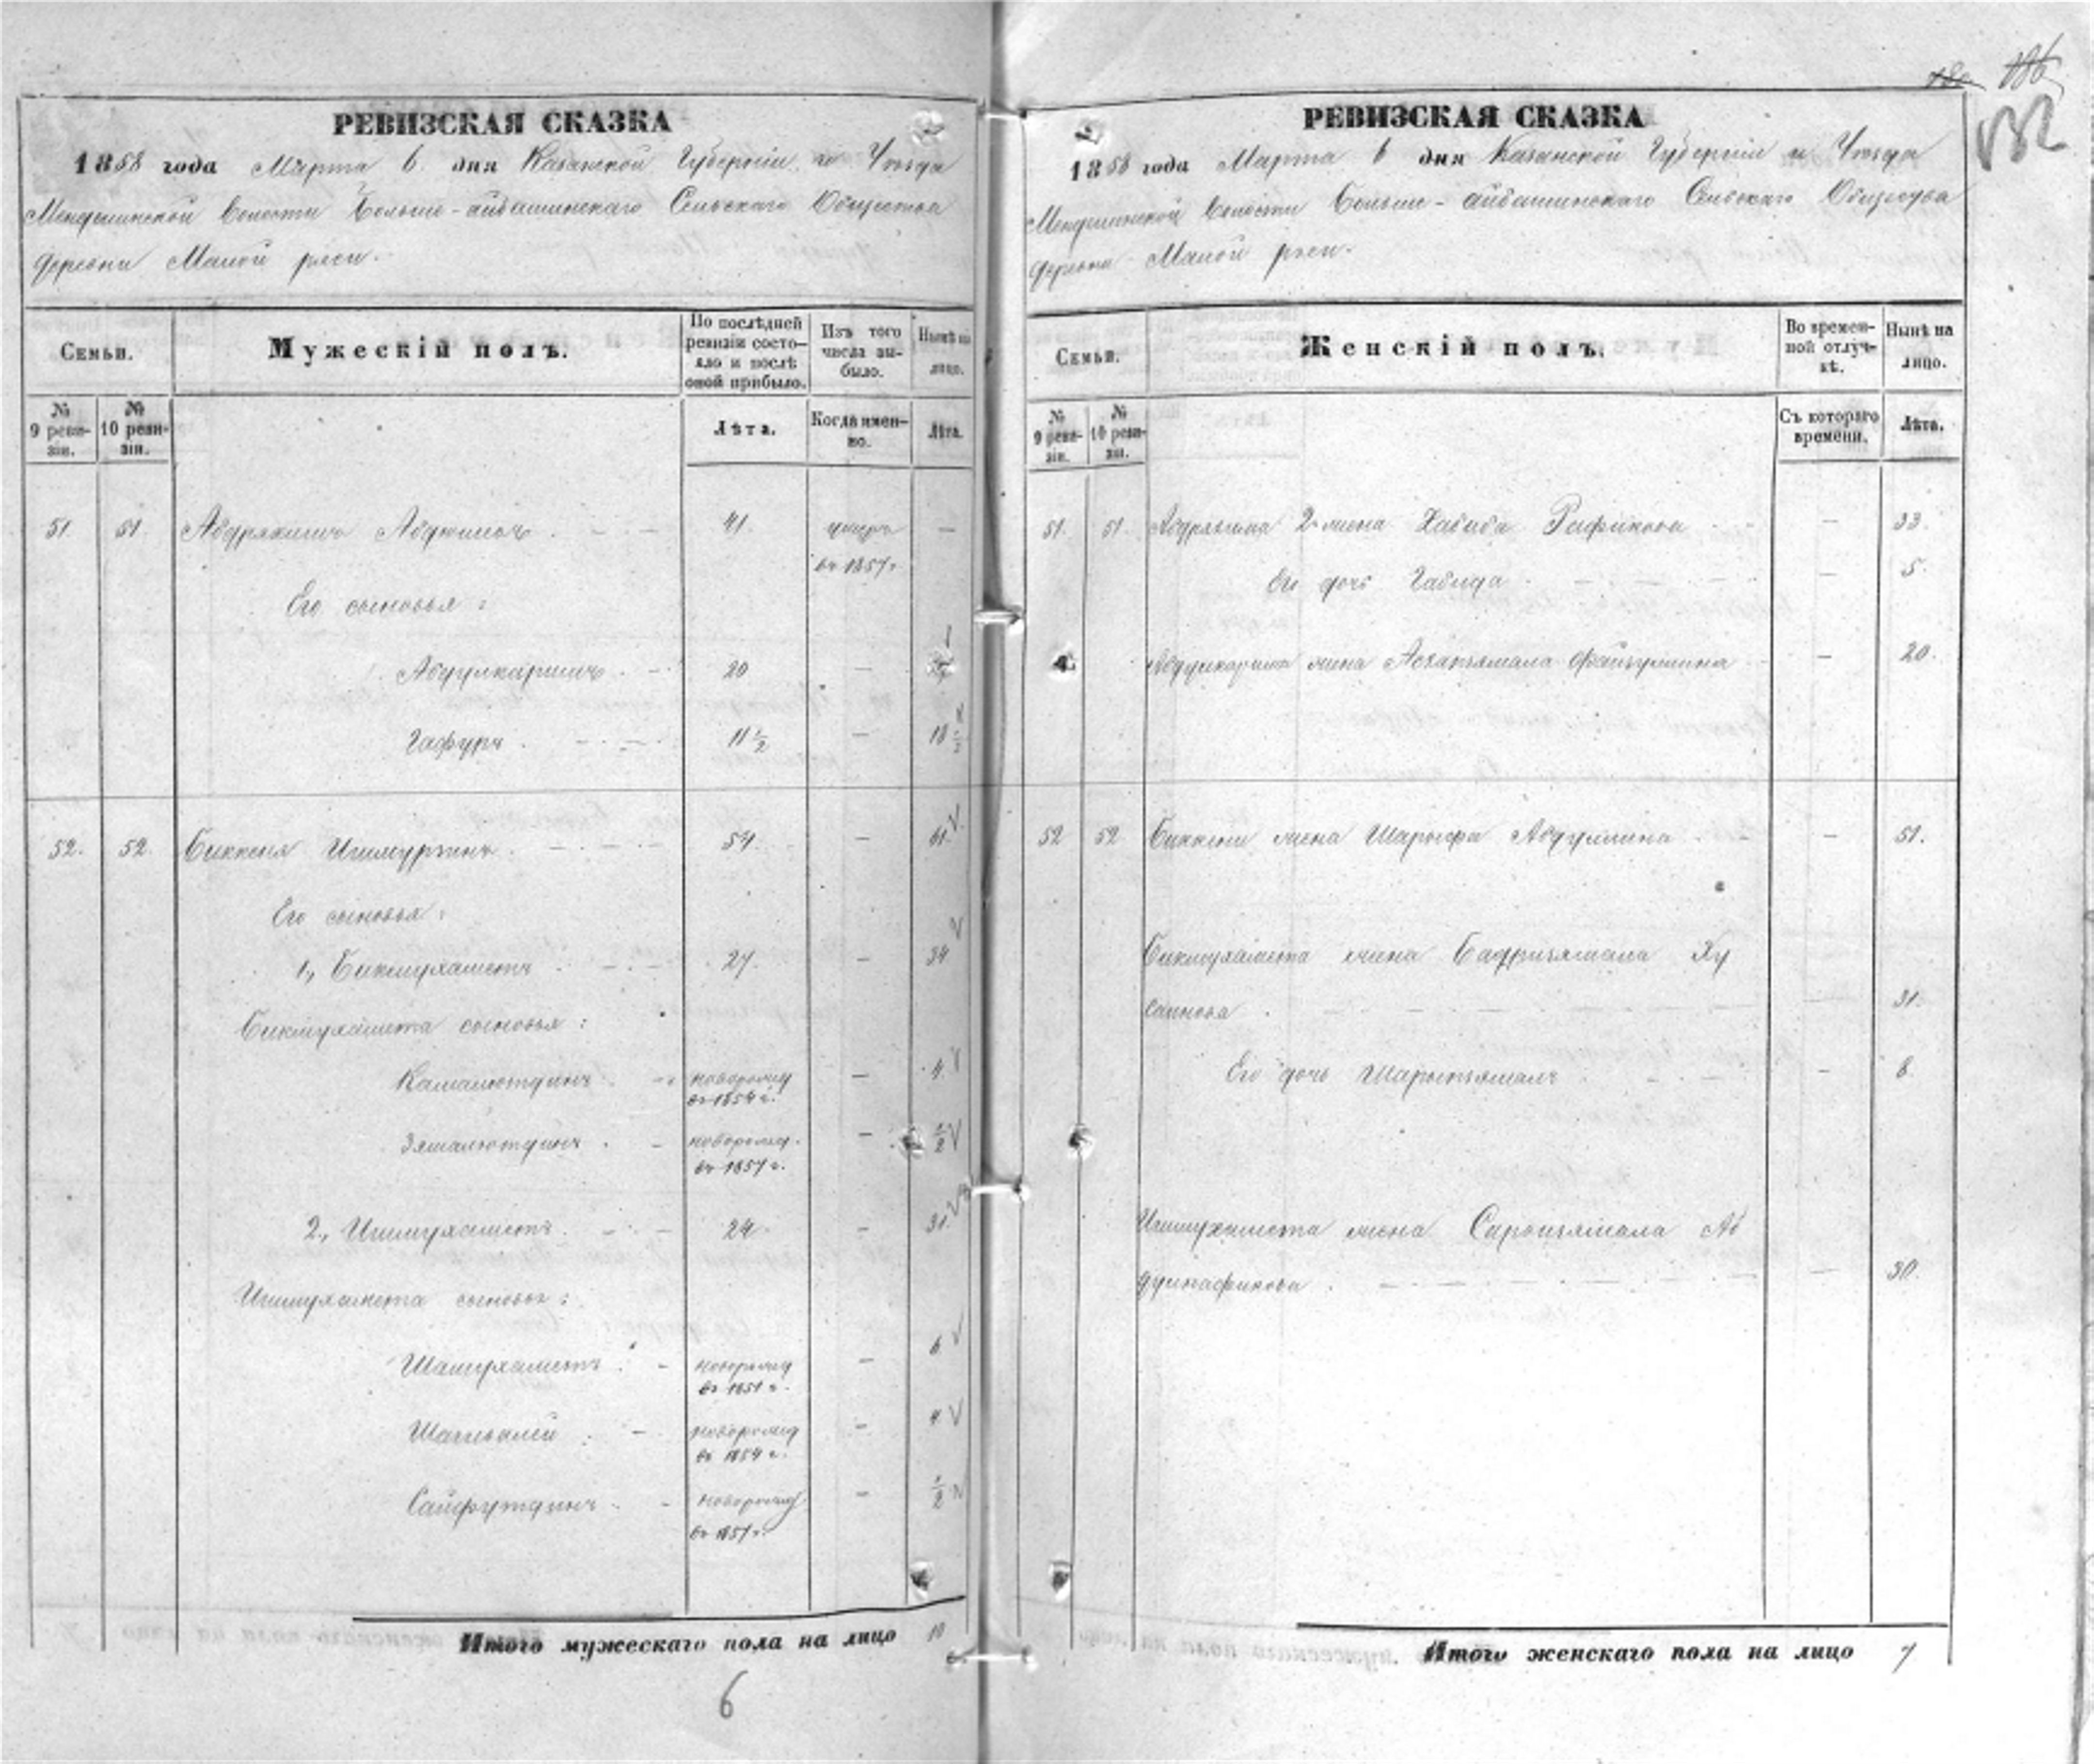 180 186
132
РЕВИЗСКАЯ СКАЗКА
1858 года Марта 6 дня Казанской Губернии и Уезда
Менделинской Волости Больше-айбашинскаго Сельскаго Общества
деревни Малой реси.
Семьи.
Мужескій полъ.
По послѣдней ревизіи состояло и послѣ оной прибыло.
Изъ того числа выбыло.
Нынѣ на лицо.
№ 9 ревизіи.
№ 10 ревизіи.
Лѣта.
Когда именно.
Лѣта.
51. 51. Абдряхимъ 41. умеръ —
въ 1857 г.
Его сыновья:
Абдулкаримъ 20 —
Гафуръ 11 1/2 — 18 1/2
52. 52. Биккеня Ишмурзинъ 54. — 61.
Его сыновья:
1., Бикмухаметъ 27. — 34
Бикмухамета сыновья:
Камалютдинъ новорожд — 4.
въ 1854 г.
Зямалютдинъ новорожд. — 1/2
въ 1857 г.
2., Ишмухаметъ 24. — 31.
Ишмухамета сыновья:
Шамухаметъ новорожд — 6
въ 1851 г.
Шагивалей новорожд — 4
въ 1854 г.
Сайфутдинъ новорожд — 1/2
въ 1857 г.
Итого мужескаго пола на лицо 10
6
РЕВИЗСКАЯ СКАЗКА
1858 года Марта 6 дня Казанской Губерніи и Уезда
Менделинской Волости Больше-айбашинскаго Сельскаго Общества
деревни Малой реси.
Семьи.
Женскій полъ.
Во временной отлучкѣ.
Нынѣ на лицо.
№ 9 ревизіи.
№ 10 ревизіи.
Съ котораго времени.
Лѣта.
51. 51. Абдряхима 2я жена Хабиба Рафикова — 33.
Его дочь Габида — 5.
Абдулкарима жена Файзуллина — 20.
52 52 Биккени жена Шарыфа Абдуллина — 51.
Бикмухамета жена Бадризямала Ху
саинова — 31.
Его дочь Шарыпзямалъ — 6.
Ишмухамета жена Аб
— 30.
Итого женскаго пола на лицо 7